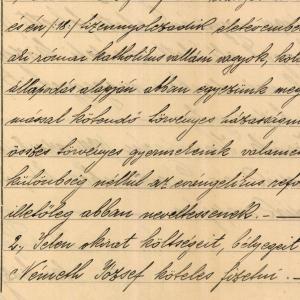 és én /:18:/ tizennyolczadik életévembe
ali római katholikus vallású vagyok, köl
állapodás alapján abban egyezünk meg
mással kötendő törvényes házasságun
törvényes gyermekeink valamen
különbség nélkül az evángelikus ref
illetőleg abban neveltessenek. -
2., Jelen okirat költségeit, bélyegeit
Németh József köteles fizetni. -